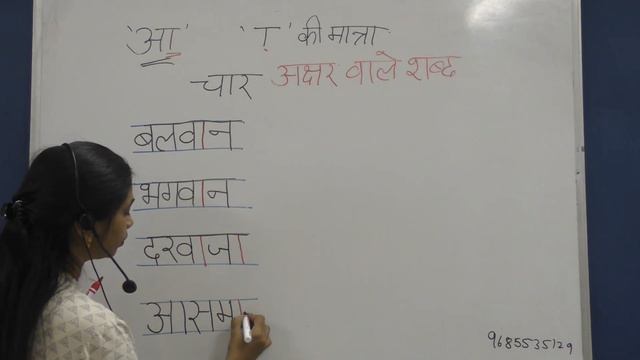 'आ' 'ा' की मात्रा
चार अक्षर वाले शब्द
बलवान
भगवान
दरवाजा
आसमा
9685535129